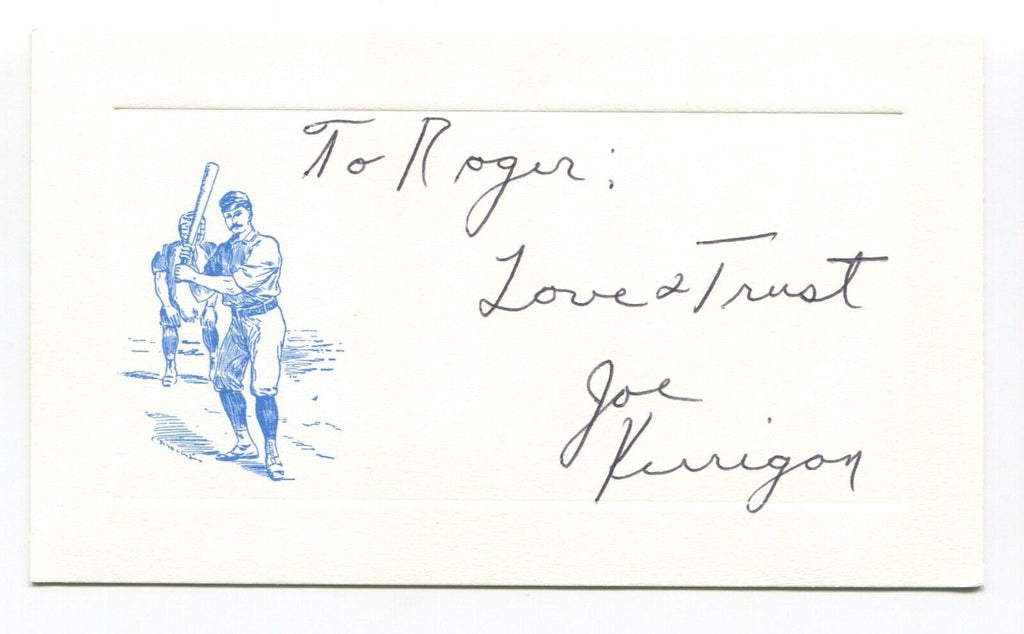 To Roger:
Love & Trust
Joe
Kerrigan